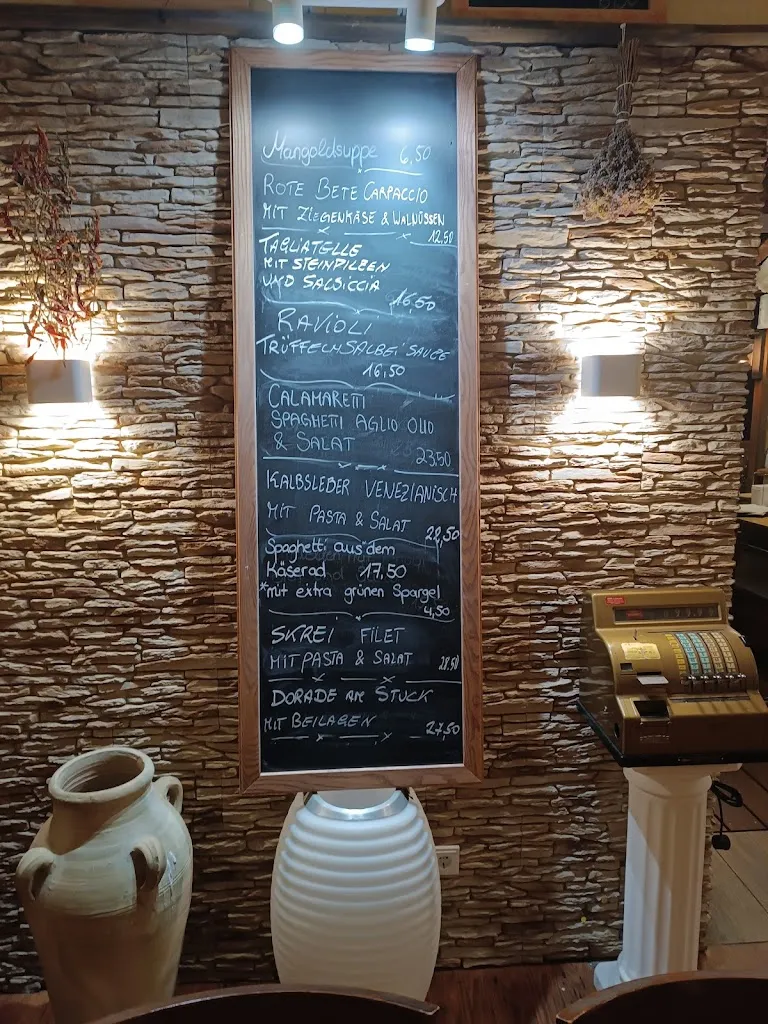 Mangoldsuppe 6,50
ROTE BETE CARPACCIO
MIT ZIEGENKÄSE & WALNÜSSEN
12,50
TAGLIATELLE
MIT STEINPILZEN
UND SALSICCIA
16,50
RAVIOLI
TRÜFFELN SALBEI SAUCE
16,50
CALAMARETTI
SPAGHETTI AGLIO OLIO
& SALAT
23,50
KALBSLEBER VENEZIANISCH
MIT PASTA & SALAT
22,50
Spaghetti aus dem
Käserad 17,50
*mit extra grünen Spargel
4,50
SKREI FILET
MIT PASTA & SALAT 28,50
DORADE AM STÜCK
MIT BEILAGEN 27,50